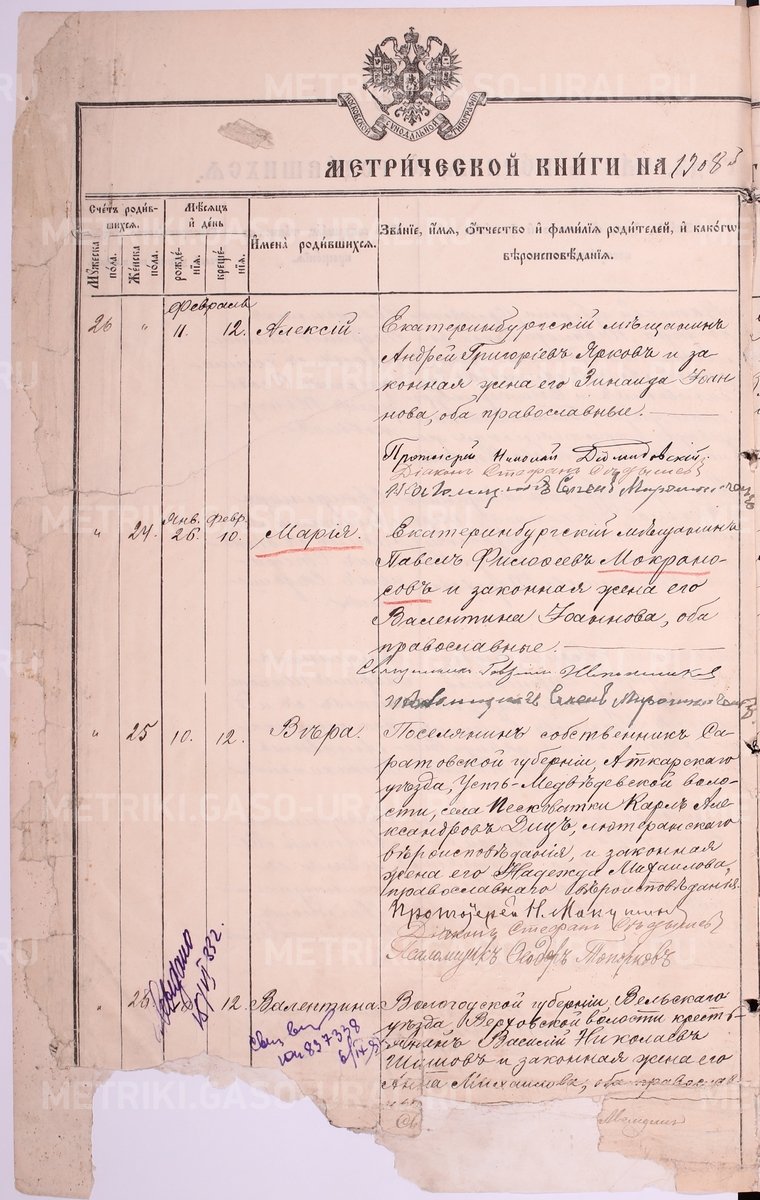 МОСКОВСКОЙ СѴНОДАЛЬНОЙ ТИПОГРАФІИ
МЕТРИ́ЧЕСКОЙ КНИ́ГИ НА 1908
Сче́тъ роди́в-
шихся.
Мѣ́сяцъ
и҆ де́нь
Мꙋ́жеска
по́ла.
Же́нска
по́ла.
рожде́-
нїя.
креще́-
нїя.
И҆мена̀ роди́вшихся.
Зва́нїе, и҆́мя, ѻ҆́тчество и҆ фами́лїя роди́телей, и҆ како́гѡ
вѣроисповѣ́данїя.
Февраль
26 " 11. 12. Алексій. Екатеринбургскій мѣщанинъ
Андрей Григоріевъ Ярковъ и за
конная жена его Зинаида Іоан
нова, оба православные.
Протоіерей Николай Діомидовскій.
Діаконъ Стефанъ
Янв. Февр.
" 24. 26. 10. Марія. Екатеринбургскій мѣщанинъ
Павелъ Филофеевъ Мокроно-
совъ и законная жена его
Валентина Іоаннова, оба
православные.
Священникъ
" 25 10. 12. Вѣра. Поселянинъ собственникъ Са-
ратовской губерніи, Аткарскаго
уѣзда, Усть-Медвѣдевской воло-
сти, села Песковатки Карлъ Але-
ксандровъ Дицъ, лютеранскаго
вѣроисповѣданія, и законная
жена его Надежда Михаилова,
православнаго вѣроисповѣданія.
Протоіерей Н.
Діаконъ Стефанъ
Псаломщикъ Ѳедоръ Топорковъ
" 25 12. Валентина Вологодской губерніи, Вельскаго
уѣзда, Верховской волости кресть-
янинъ Василій Николаевъ
Шишовъ и законная жена его
Анна Михаилова, оба православ
837338